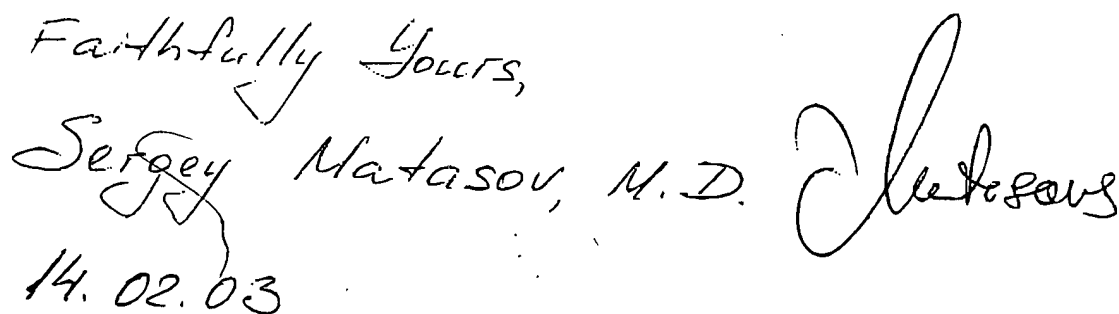 Faithfully Yours,
Sergey Matasov, M.D. Matasovs
14. 02. 03